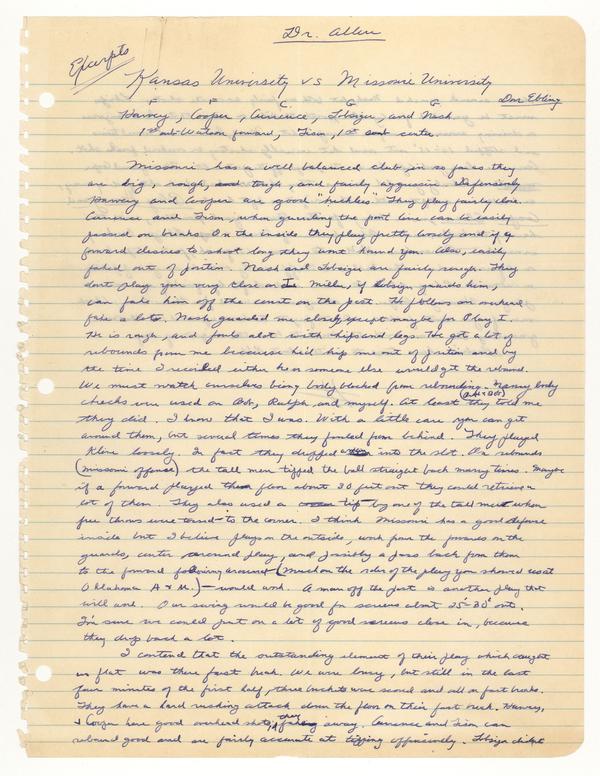 Dr. Allen
Excerpts
Kansas University vs Missouri University
Don Ebling
F F C G G
Harvey, Cooper, Currence, Lobsiger, and Nash.
1st sub-Watson forward, Tison, 1st sub center.
Missouri has a well balanced club, in so far as they
are big, rough, tough, and fairly aggressive. Defensively
Harvey and Cooper are good "heckles". They play fairly close.
Currence and Tison, when guarding the post line can be easily
passed on breaks. On the inside they play pretty loosely and if a
forward desires to shoot long they wont hound you. Also, easily
faked out of position. Nash and Lobsiger are fairly rough. They
dont play you very close or Joe Miller, if Lobsiger guards him,
can fake him off the court on the post. He follows an overhead
fake a lot. Nash guarded me closely, except maybe for Play I.
He is rough, and fouls alot with hips and legs. He got a lot of
rebounds from me because he'd hip me out of position and by
the time I recoiled either he or someone else would get the rebound.
We must watch ourselves being body blocked from rebounding. Many body
checks were used on Bob, Ralph and myself. At least they told me
they did. I know that I was. With a little care you can get
around them, but several times they fouled from behind. They played
Kline loosely. In fact they dropped into the slot. On rebounds
(missouri offense) the tall men tipped the ball straight back many times. Maybe
if a forward played the floor about 20 feet out they could retrieve a
lot of them. They also used a tip by one of the tall men when
free throws were tossed to the corner. I think Missouri has a good defense
inside but I believe plays on the outside, work from the forwards on the
guards, center around play, and possibly a pass back from them
to the forward following around (much on the order of the play you showed us at
Oklahoma A & M.) would work. A man off the post is another play that
will work. Our swing would be good for screens about 25'-30' out.
I'm sure we could put on a lot of good screens close in, because
they drop back a lot.
I contend that the outstanding element of their play which caught
us flat was there fast break. We were busy, but still in the last
four minutes of the first half, three buckets were scored and all on fast breaks.
They have a hard rushing attack down the floor on their fast break. Harvey,
& Cooper have good overhead shots, they fading away. Currence and Tison can
rebound good and are fairly accurate at tipping offensively. Lobsiger didnt